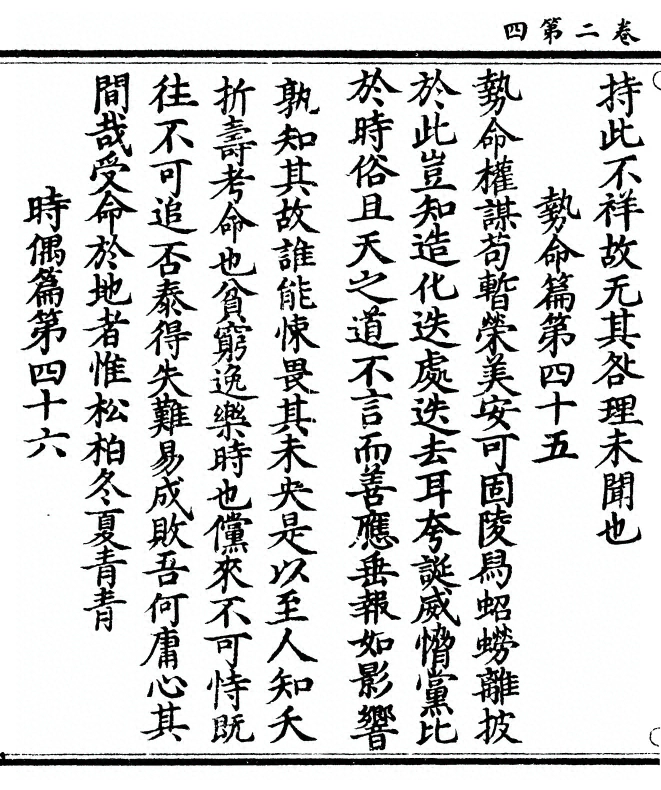 卷二第四
持此不祥故无其咎理未聞也
勢命篇第四十五
勢命權謀苟暫榮美安可固陵舄蛁蟧離披
於此豈知造化迭處迭去耳夸誕威憎黨比
於時俗且天之道不言而善應垂報如影響
孰知其故誰能悚畏其未央是以至人知夭
折壽考命也貧窮逸樂時也儻來不可恃既
往不可追否泰得失難易成敗吾何庸心其
間哉受命於地者惟松柏冬夏青青
時偶篇第四十六